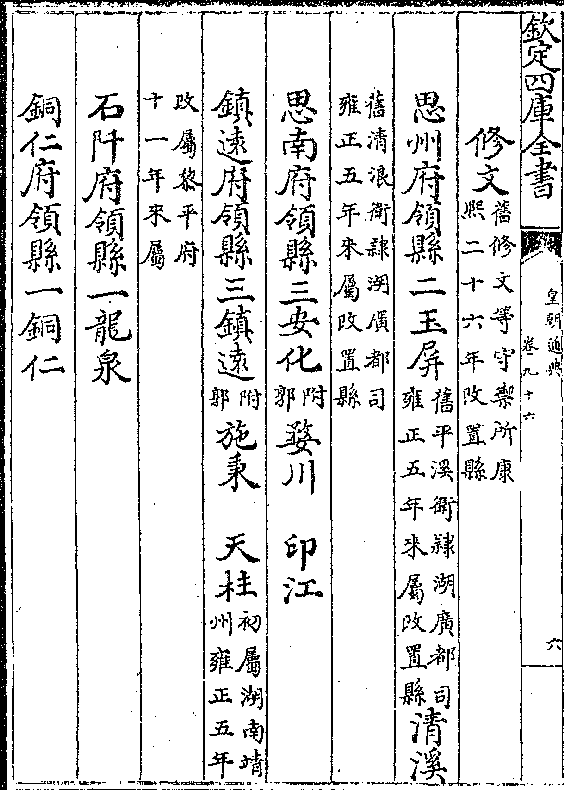 欽定四庫全書
皇朝通典
卷九十六
六
修文舊修文等守禦所康
熙二十六年改置縣
思州府領縣二玉屏舊平溪衛隸湖廣都司
雍正五年來屬改置縣清溪
舊清浪衛隸湖廣都司
雍正五年來屬改置縣
思南府領縣三安化附
郭婺川 印江
鎮遠府領縣三鎮遠附
郭施秉 天柱初屬湖南靖
州雍正五年
改屬黎平府
十一年來屬
石阡府領縣一龍泉
銅仁府領縣一銅仁